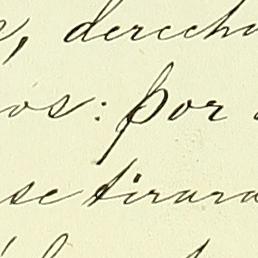 , derecho
os: por
se tirara